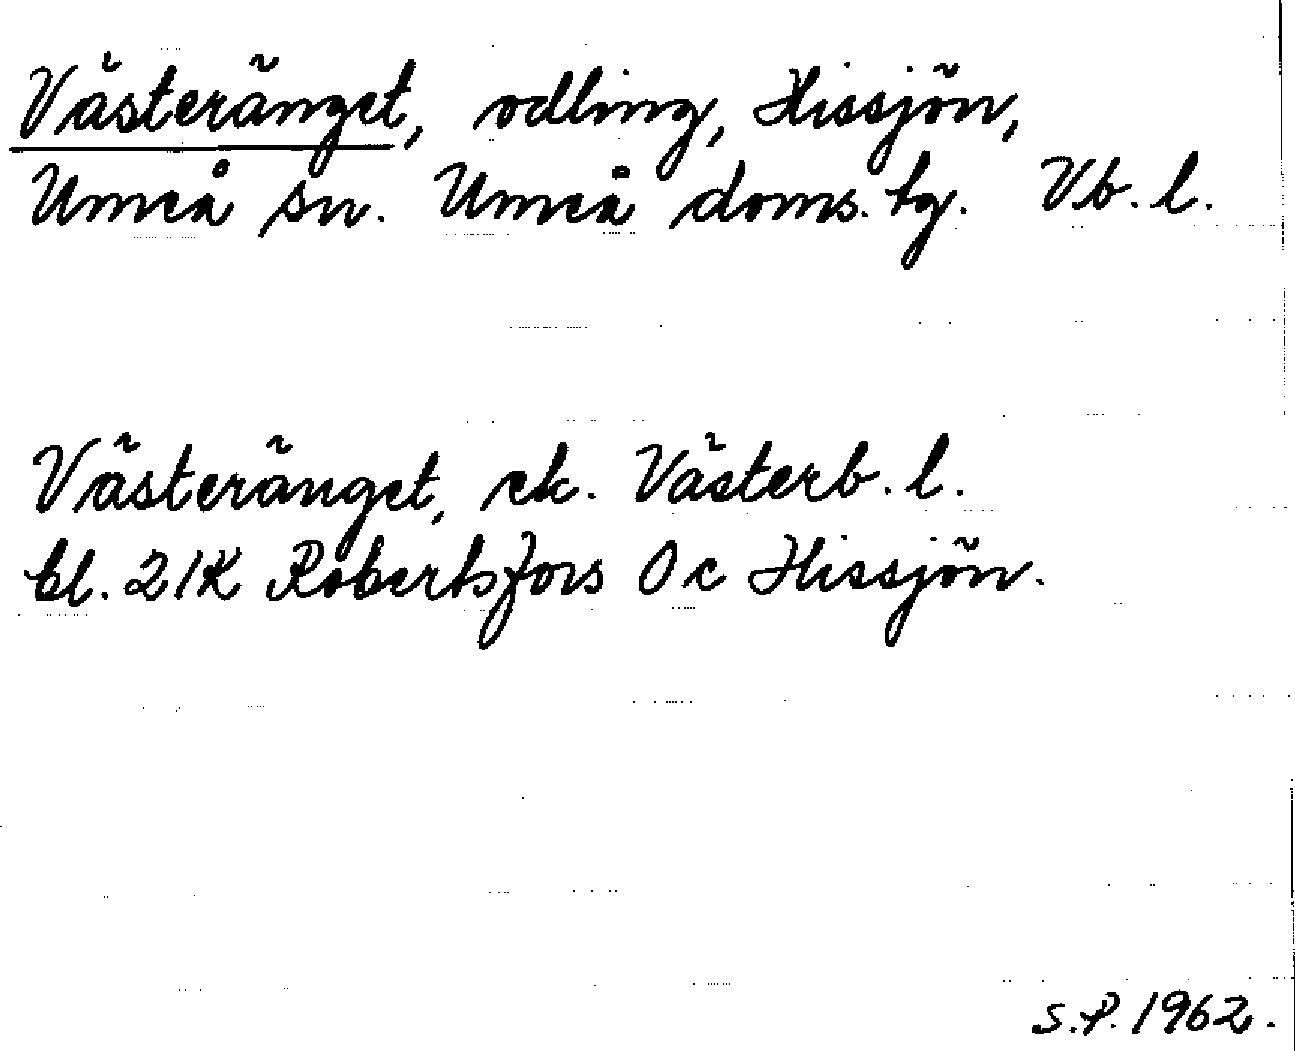 Västeränget, odling, Hissjön,
Umeå sn. Umeå doms. tg. Vb. l.
Västeränget, ek. Västerb. l.
bl. 21K Robertsfors 0 c Hissjön.
S.P. 1962.